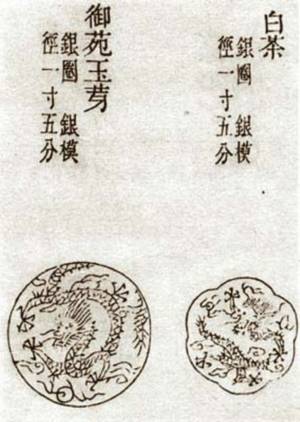 白茶
銀圈　銀模
徑一寸五分
御苑玉芽
銀圈　銀模
徑一寸五分